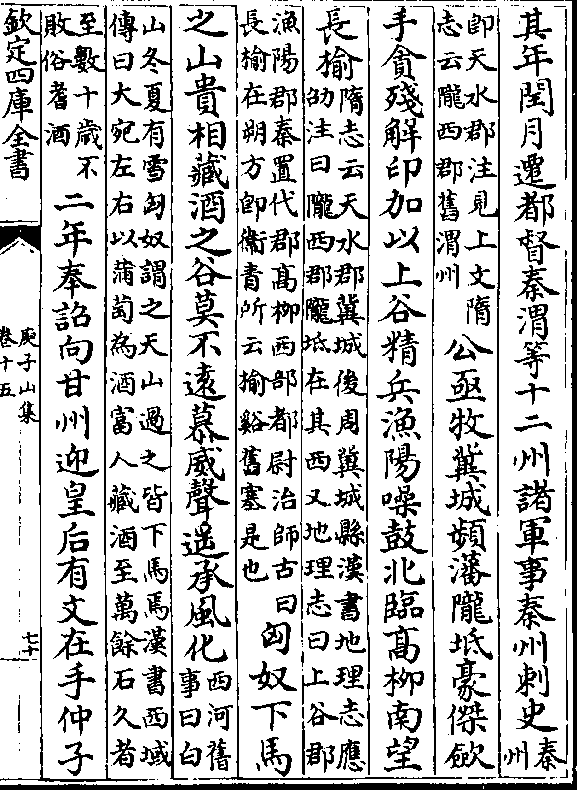 其年閏月遷都督秦渭等十二州諸軍事秦州刺史秦州
即天水郡注見上文隋志云隴西郡舊渭州公亟牧冀城頻藩隴坻豪傑斂
手貪殘解印加以上谷精兵漁陽噪鼓北臨髙柳南望
長榆隋志云天水郡冀城後周冀城縣漢書地理志應劭注曰隴西郡隴坻在其西又地理志曰上谷郡
漁陽郡秦置代郡髙柳西部都尉治師古曰長榆在朔方即衛青所云榆谿舊塞是也匈奴下馬
之山貴相藏酒之谷莫不遠慕威聲遥承風化西河舊事曰白
山冬夏有雪匈奴謂之天山過之皆下馬焉漢書西域傳曰大宛左右以蒲萄為酒富人藏酒至萬餘石久者
至數十歲不敗俗耆酒二年奉詔向甘州迎皇后有文在手仲子
欽定四庫全書
庾子山集
卷十五
七十